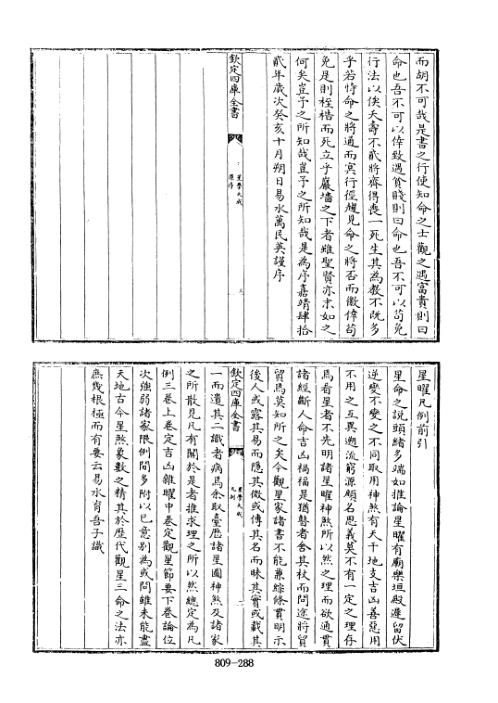 而胡不可哉是書之行使知命之士觀之遇富貴則曰
命也吾不可以倖致遇貧賤則曰命也吾不可以苟免
行法以俟夭壽不貳將齊得喪一死生其為教不既多
乎若恃命之將通而冥行徑趨見命之將否而徼倖苟
免是則桎梏而死立乎巖墻之下者雖聖賢亦末如之
何矣豈予之所知哉豈予之所知哉是為序嘉靖肆拾
貳年歲次癸亥十月朔日易水萬民英謹序
欽定四庫全書
星學大成
原序
星曜凡例前引
星命之說頭緒多端如推論星曜有廟樂垣殿遲留伏
逆變不變之不同取用神煞有天干地支吉凶善惡用
不用之互異遡流窮源顧名思義莫不有一定之理存
焉看星者不先明諸星曜神煞所以然之理而欲通貫
諸經斷人命吉凶禍福是猶瞽者舍其杖而問途將貿
貿焉莫知所之矣今觀星家諸書不能兼綜條貫明示
後人或露其易而隱其微或傳其名而昧其實或載其
欽定四庫全書
星學大成
凡例
一而遺其二識者病焉余取臺歷諸星圖神煞及諸家
之所散見凡有關於是者推求理之所以然總定為凡
例三卷上卷定吉凶雜曜中卷定觀星節要下卷論位
次強弱諸家限例間多附以己意別為或問雖未能盡
天地古今星煞象數之精其於歷代觀星三命之法亦
庶幾根極而有要云易水育吾子識
809-288